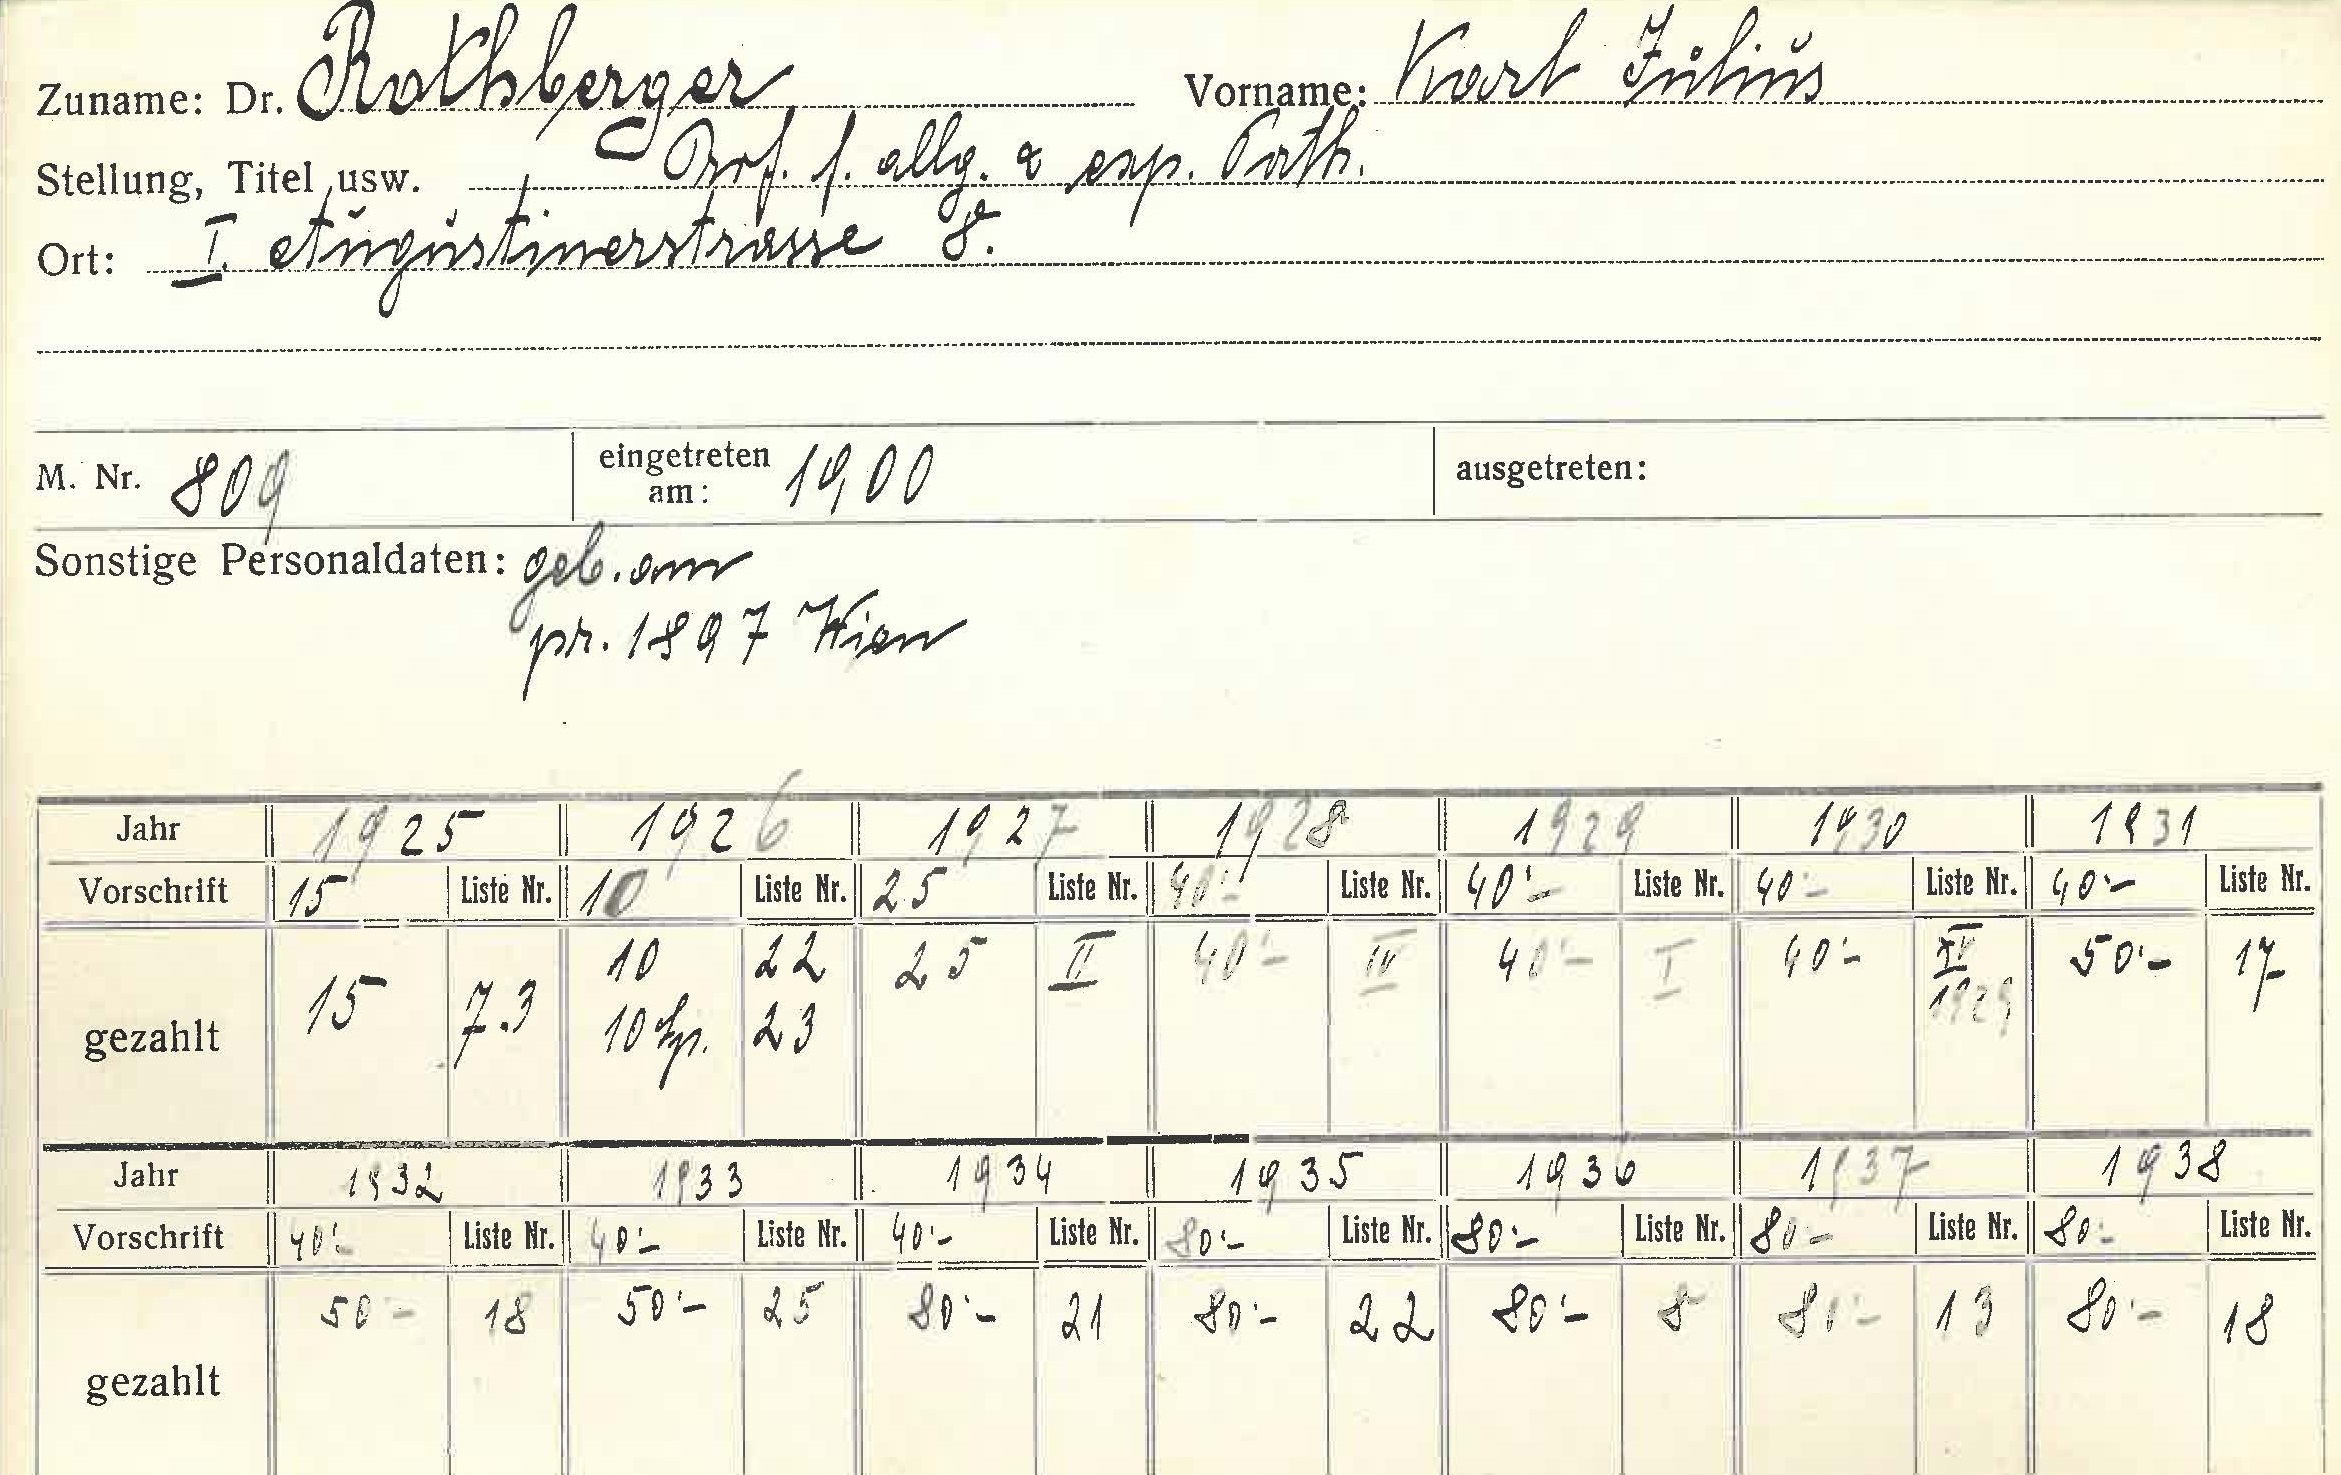 Zuname: Dr. Rothberger Vorname: Karl Julius
Stellung, Titel usw. Prof. f. allg. & exp. Path.
Ort: I. Augustinerstrasse 8.
M. Nr. 809 eingetreten am: 1900 ausgetreten:
Sonstige Personaldaten: geb. am
pr. 1897 Wien
Jahr 1925 1926 1927 1928 1929 1930 1931
Vorschrift 15 Liste Nr. 10 Liste Nr. 25 Liste Nr. 40·- Liste Nr. 40·- Liste Nr. 40·- Liste Nr. 40·- Liste Nr.
gezahlt 15 7.3 10 22 25 II 40·- IV 40·- I 40·- 50·- 17
10 23 1929
Jahr 1932 1933 1934 1935 1936 1937 1938
Vorschrift 40·- Liste Nr. 40·- Liste Nr. 40·- Liste Nr. 80·- Liste Nr. 80·- Liste Nr. 80·- Liste Nr. 80·- Liste Nr.
gezahlt 50·- 18 50·- 25 80·- 21 80·- 22 80·- 8 80·- 13 80·- 18